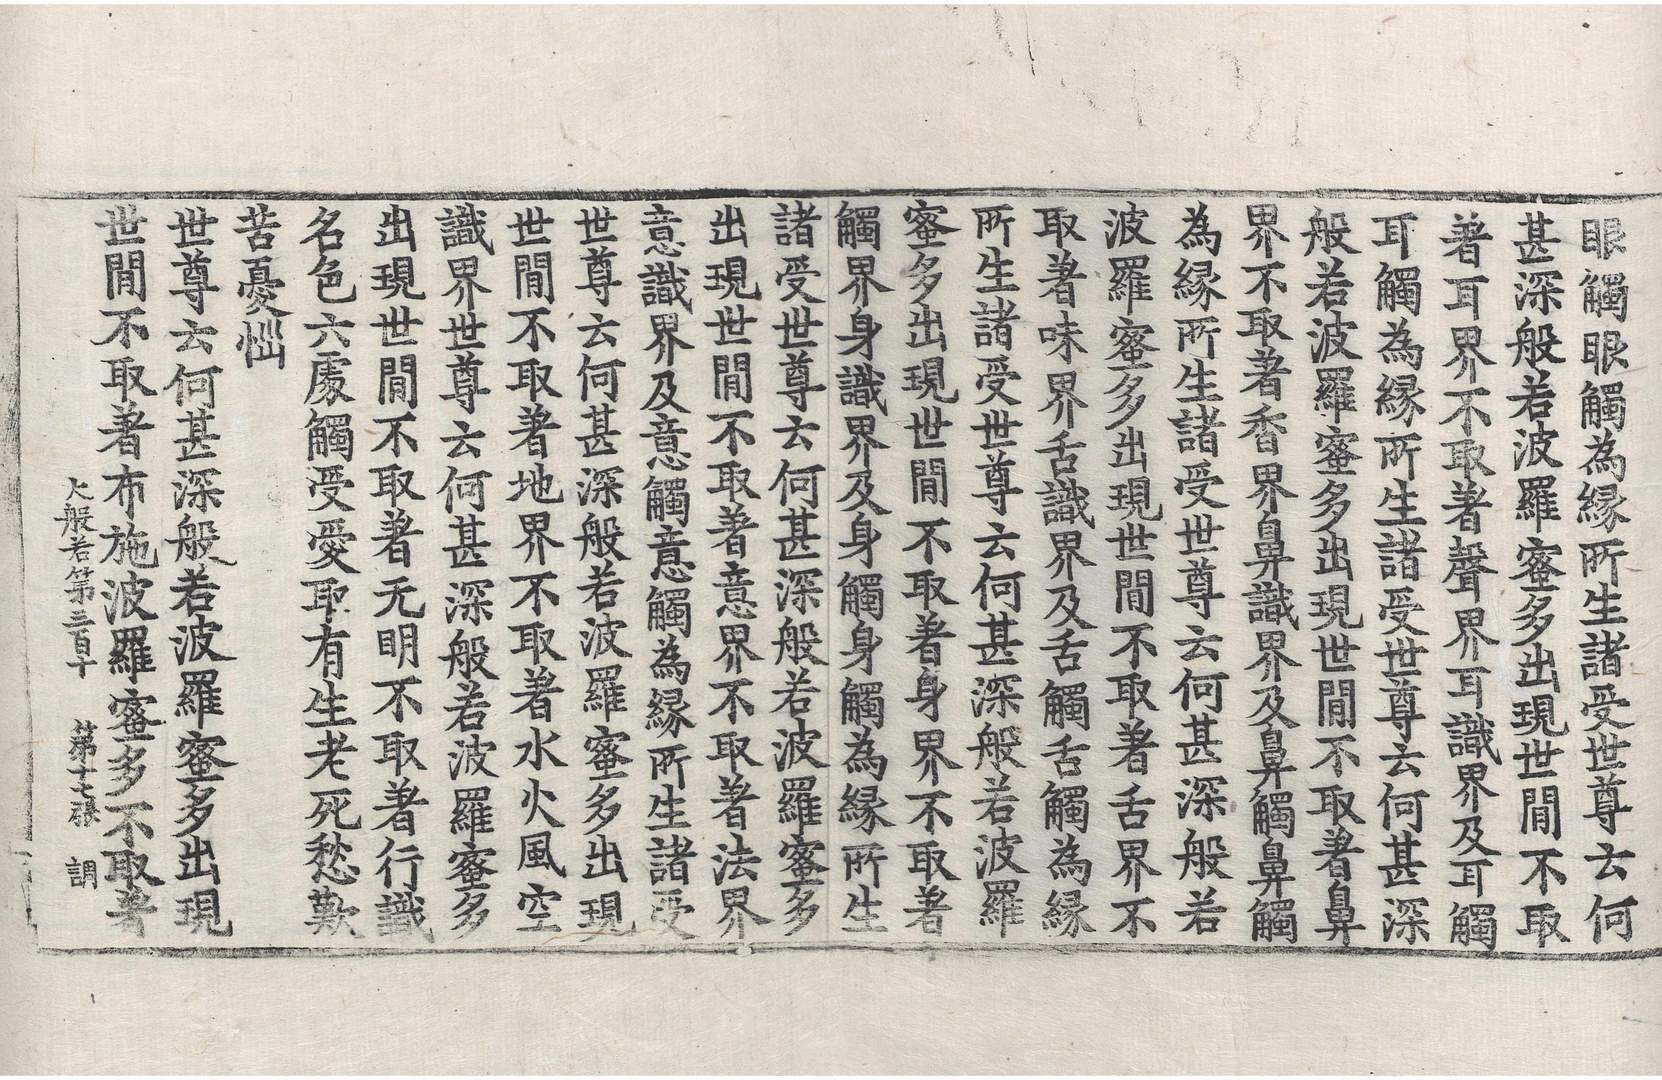 眼觸眼觸為緣所生諸受世尊云何
甚深般若波羅蜜多出現世間不取
著耳界不取著聲界耳識界及耳觸
耳觸為緣所生諸受世尊云何甚深
般若波羅蜜多出現世間不取著鼻
界不取著香界鼻識界及鼻觸鼻觸
為緣所生諸受世尊云何甚深般若
波羅蜜多出現世間不取著舌界不
取著味界舌識界及舌觸舌觸為緣
所生諸受世尊云何甚深般若波羅
蜜多出現世間不取著身界不取著
觸界身識界及身觸身觸為緣所生
諸受世尊云何甚深般若波羅蜜多
出現世間不取著意界不取著法界
意識界及意觸意觸為緣所生諸受
世尊云何甚深般若波羅蜜多出現
世間不取著地界不取著水火風空
識界世尊云何甚深般若波羅蜜多
出現世間不取著无明不取著行識
名色六處觸受愛取有生老死愁歎
苦憂惱
世尊云何甚深般若波羅蜜多出現
世間不取著布施波羅蜜多不取著
大般若第三百十　第十七張　調